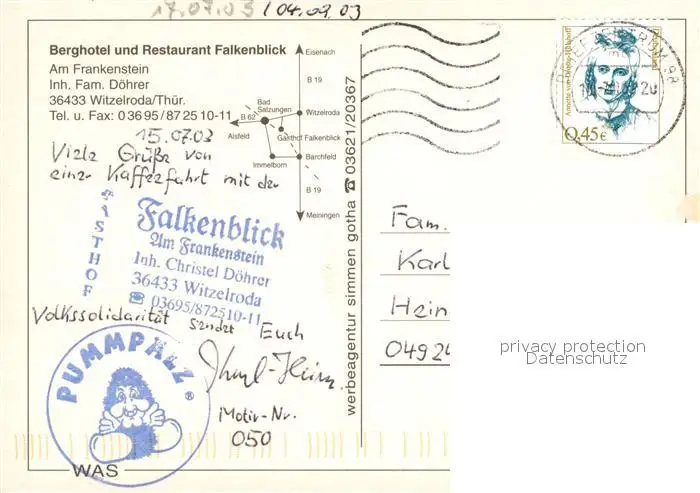 17.07.03 / 04.09.03
Berghotel und Restaurant Falkenblick
Am Frankenstein
Inh. Fam. Döhrer
36433 Witzelroda/Thür.
Tel. u. Fax: 03695/872510-11
Eisenach
B 19
Bad Salzungen
Witzelroda
B 62
Gasthof Falkenblick
Aisfeld
Immelborn
Barchfeld
B 19
Meiningen
15.07.03
Viele Grüße von
einer Kaffeefahrt mit der
GASTHOF
Falkenblick
Am Frankenstein
Inh. Christel Döhrer
36433 Witzelroda
☎ 03695/872510-11
Volkssolidarität sendet Euch
Karl-Heinz
Motiv-Nr.
050
PUMMPÄLZ ®
WAS
werbeagentur simmen gotha ☎ 03621/20367
Annette von Droste-Hülshoff
0,45€
Fam.
Karl
Hein
0492
privacy protection
Datenschutz